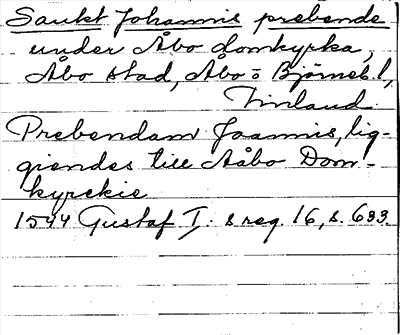 Sankt Johannis prebende
under Åbo domkyrka,
Åbo stad, Åbo o Björneb. l,
Finland
Prebendam Joannis, lig-
giendes till Aåbo Dom-
kyrckie
1544 Gustaf I: s reg. 16, s. 633.